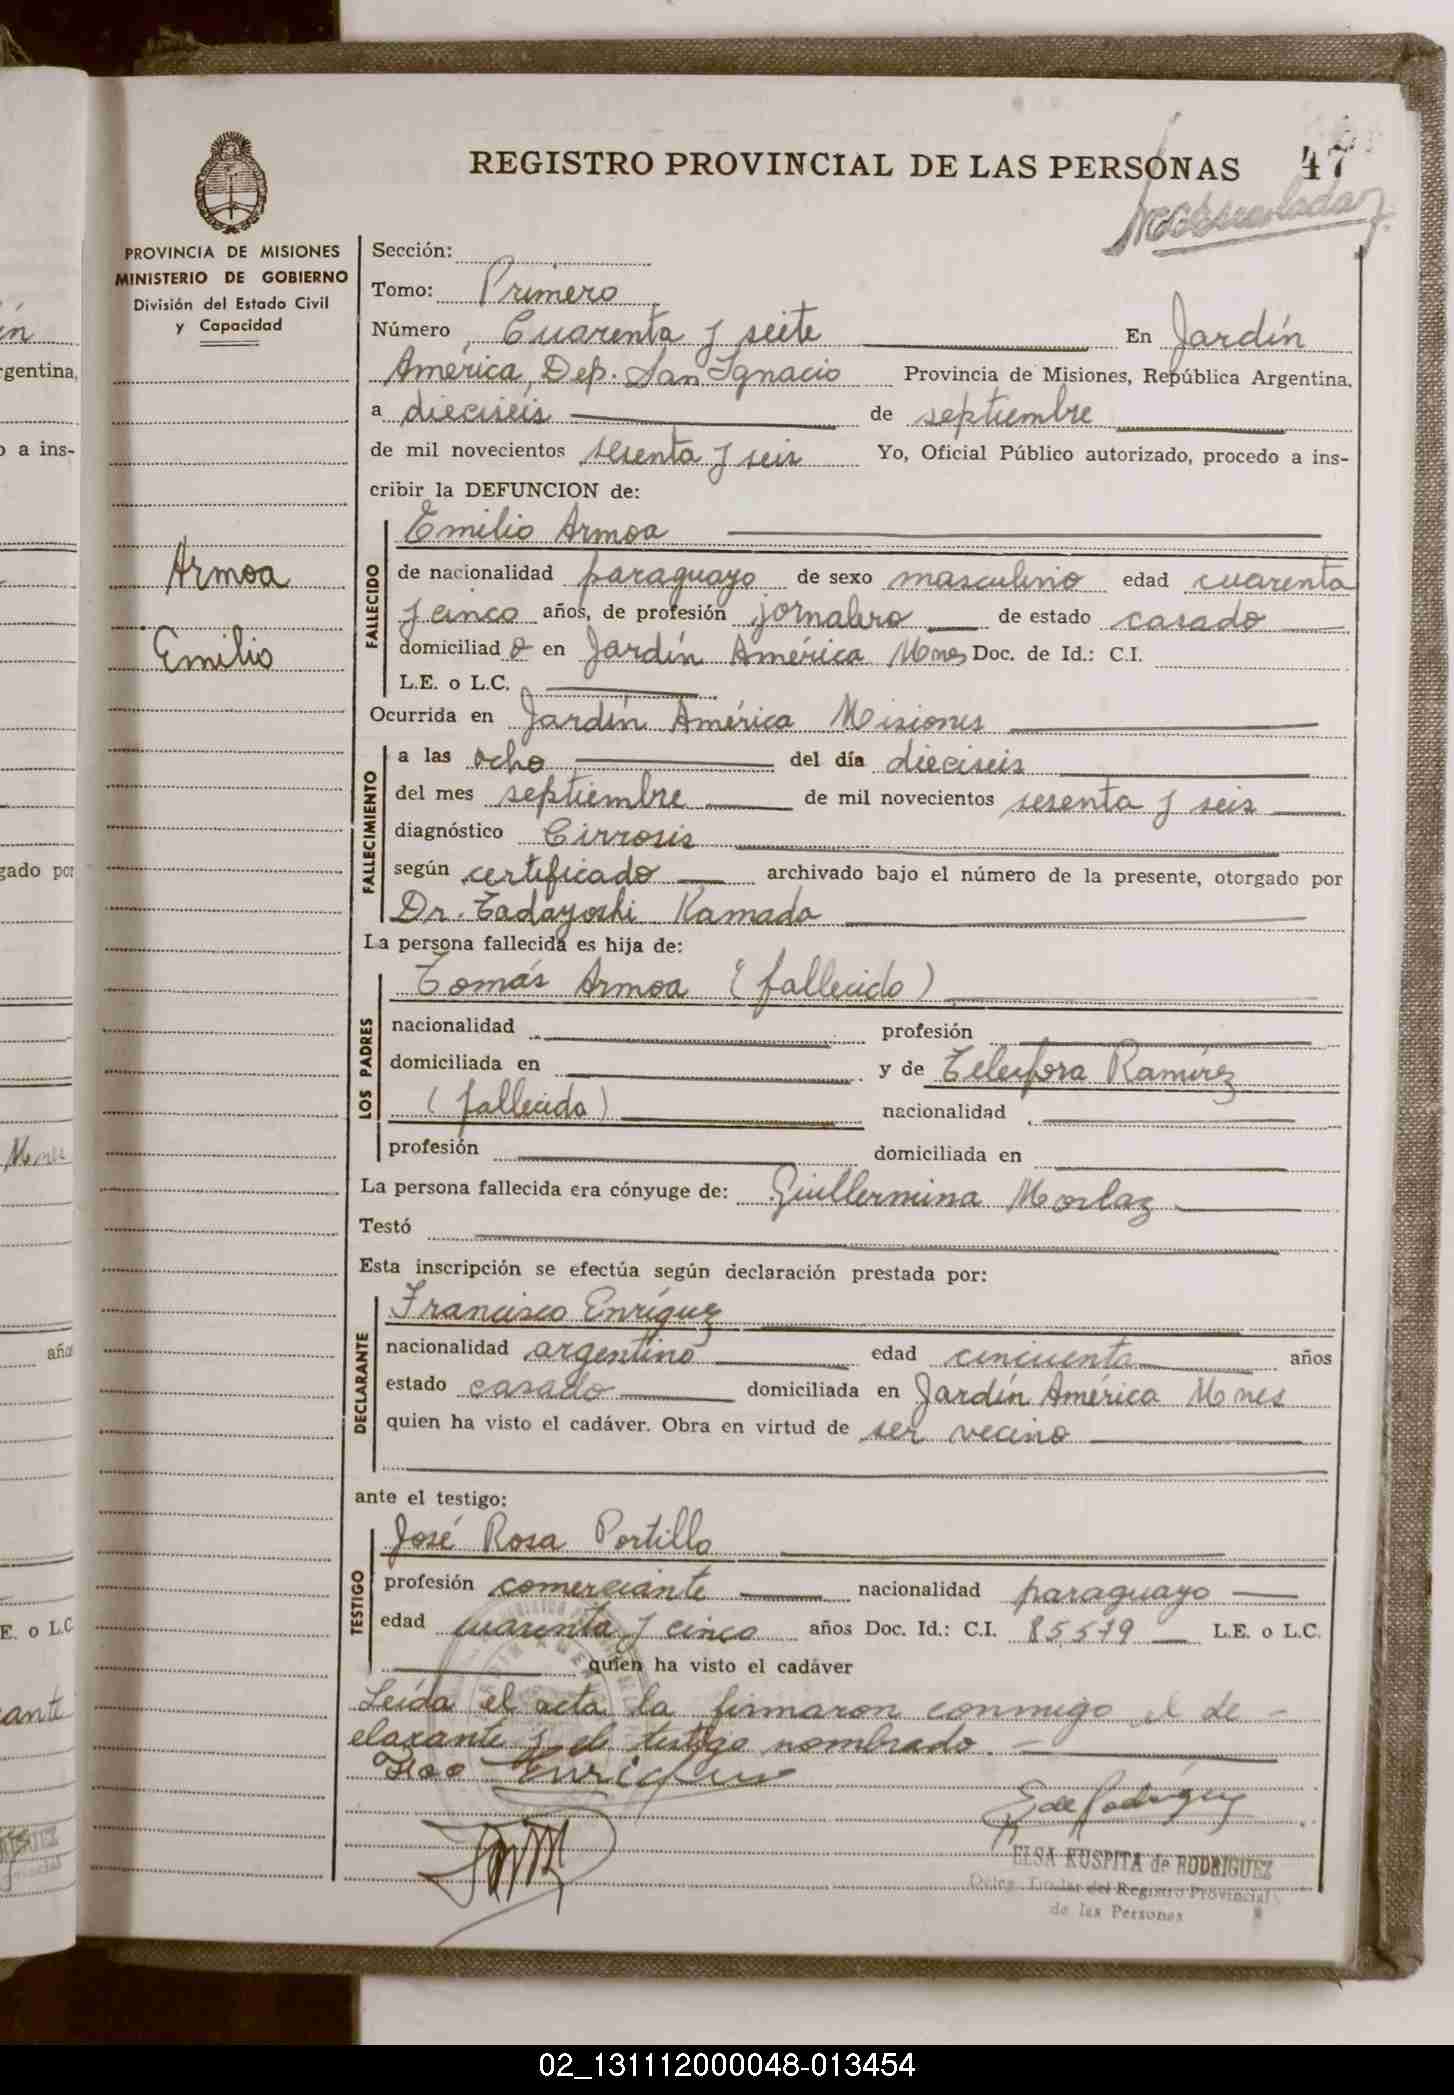 REGISTRO PROVINCIAL DE LAS PERSONAS 47
PROVINCIA DE MISIONES
MINISTERIO DE GOBIERNO
División del Estado Civil
y Capacidad
Armoa
Emilio
Sección:
Tomo: Primero
Número Cuarenta y seite En Jardín
América, Dep. San Ignacio Provincia de Misiones, República Argentina,
a dieciseis de septiembre
de mil novecientos sesenta y seis Yo, Oficial Público autorizado, procedo a ins-
cribir la DEFUNCION de:
FALLECIDO
Emilio Armoa
de nacionalidad paraguayo de sexo masculino edad cuarenta
y cinco años, de profesión jornalero de estado casado
domiciliad o en Jardín América Mnes Doc. de Id.: C.I.
L.E. o L.C.
Ocurrida en Jardín América Misiones
FALLECIMIENTO
a las ocho del día dieciseis
del mes septiembre de mil novecientos sesenta y seis
diagnóstico Cirrosis
según certificado archivado bajo el número de la presente, otorgado por
Dr. Tadayoshi Kamada
La persona fallecida es hija de:
LOS PADRES
Tomás Armoa (fallecido)
nacionalidad profesión
domiciliada en y de Telesfora Ramírez
(fallecida) nacionalidad
profesión domiciliada en
La persona fallecida era cónyuge de: Guillermina Morlaz
Testó
Esta inscripción se efectúa según declaración prestada por:
DECLARANTE
Francisco Enríquez
nacionalidad argentino edad cincuenta años
estado casado domiciliada en Jardín América Mnes
quien ha visto el cadáver. Obra en virtud de ser vecino
ante el testigo:
TESTIGO
José Rosa Portillo
profesión comerciante nacionalidad paraguayo
edad cuarenta y cinco años Doc. Id.: C.I. 85579 L.E. o L.C.
quien ha visto el cadáver
Leída el acta la firmaron conmigo el de-
clarante y el testigo nombrado.
Fco Enriquez
E de Rodríguez
ELSA KUSPITA de RODRIGUEZ
Deleg. Titular del Registro Provincial
de las Personas
02_131112000048-013454